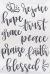 rejoice
hope bless
trust grace
peace
praise faith
blessed